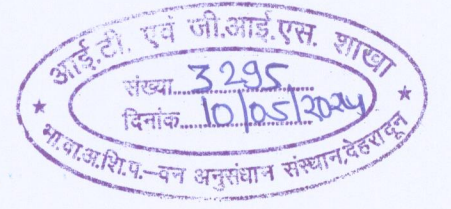 आई.टी. एवं जी.आई.एस. शाखा
संख्या 3295
दिनांक 10/05/2024
भा.वा.अ.शि.प.–वन अनुसंधान संस्थान,देहरादून